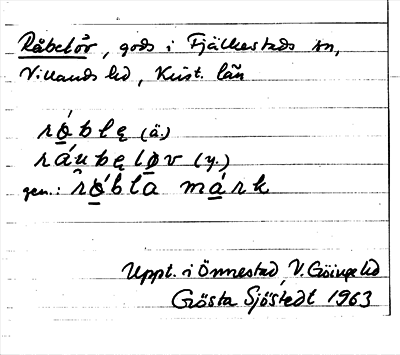 Råbelöv, gods i Fjälkestads sn,
Villands hd, Krist. län
rǫ́blę (ä.)
ráubęløv (y.)
gen.: rǫ́bla mark
Uppt. i Önnestad, V. Göinge hd
Gösta Sjöstedt 1963